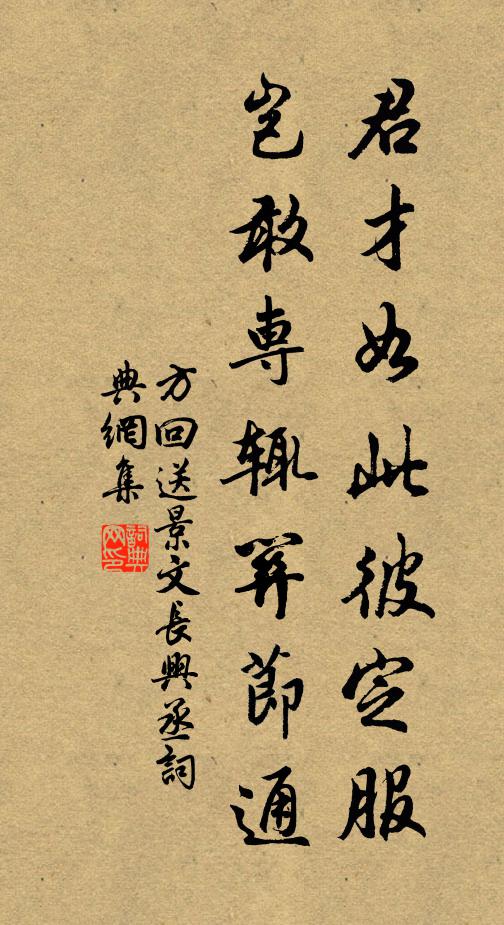 君才如此彼定服
豈敢專輒關節通
方回送景文長興丞詞
典網集
詞典
网印